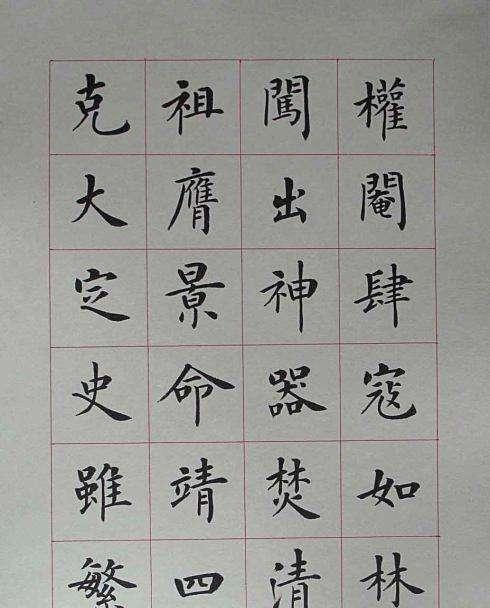 權閹肆寇如林
闖出神器焚清
祖膺景命靖四
克大定史雖繁